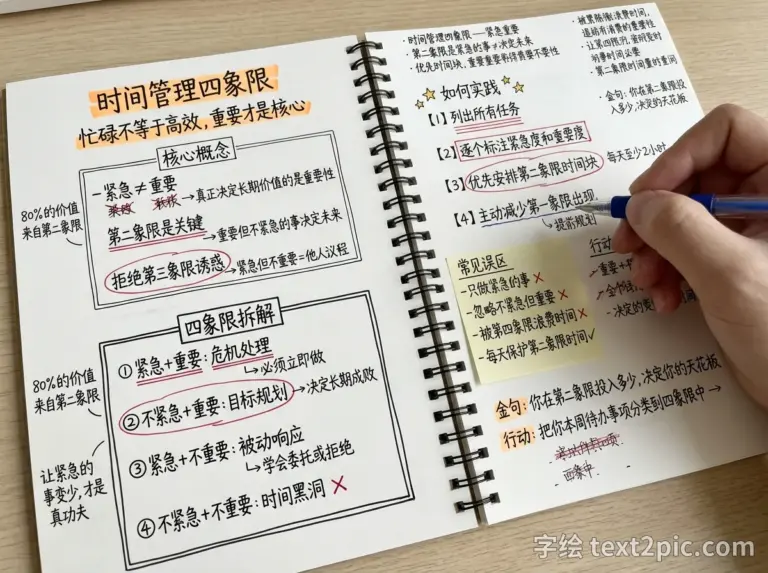 时间管理四象限
忙碌不等于高效，重要才是核心
核心概念
-紧急≠重要
→真正决定长期价值的是重要性
80%的价值
来自第二象限
第二象限是关键
→重要但不紧急的事决定未来
拒绝第三象限诱惑
→紧急但不重要=他人议程
四象限拆解
①紧急+重要:危机处理
→必须立即做
80%的价值
来自第二象限
②不紧急+重要:目标规划
→决定长期成败
③紧急+不重要:被动响应
→学会委托或拒绝
让紧急的
事变少,才是
真功夫
④不紧急+不重要:时间黑洞 ×
·时间管理四象限——紧急重要
·第二象限是紧急的事≠决定未来
·优先时间块,重要重要和得着要不要性
浪费时间,
·让第四限
·第二象限时间量的重问
·金句:你在第二象限投
入多少,决定的天花板
如何实践
【1】列出所有任务
【2】逐个标注紧急度和重要度
【3】优先安排第二象限时间块
每天至少2小时
【4】主动减少第一象限出现
→提前规划
常见误区
-只做紧急的事 ×
-忽略不紧急但重要 ×
-被第四象限浪费时间 ×
-每天保护第二象限时间 ✓
行动
重要+
-决定的
金句:你在第二象限投入多少,决定你的天花板
行动:把你本周待办事项分类到四象限中→
画象中
字绘 text2pic.com